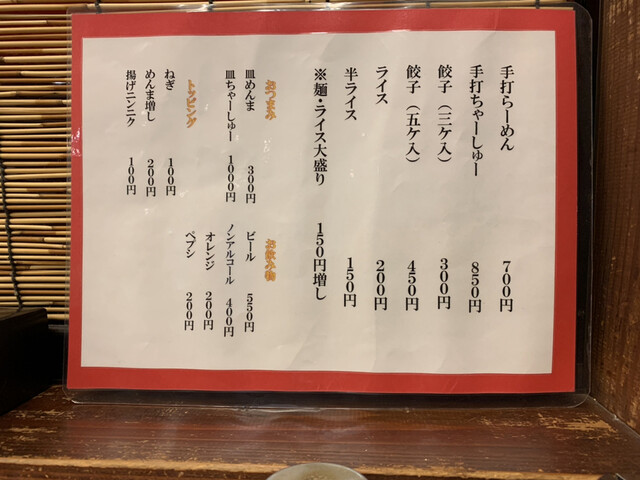 手打らーめん 700円
手打ちゃーしゅー 850円
餃子（三ケ入） 300円
餃子（五ケ入） 450円
ライス 200円
半ライス 150円
※麺・ライス大盛り 150円増し
おつまみ
皿めんま 300円
皿ちゃーしゅー 1000円
トッピング
ねぎ 100円
めんま増し 200円
揚げニンニク 100円
お飲み物
ビール 550円
ノンアルコール 400円
オレンジ 200円
ペプシ 200円